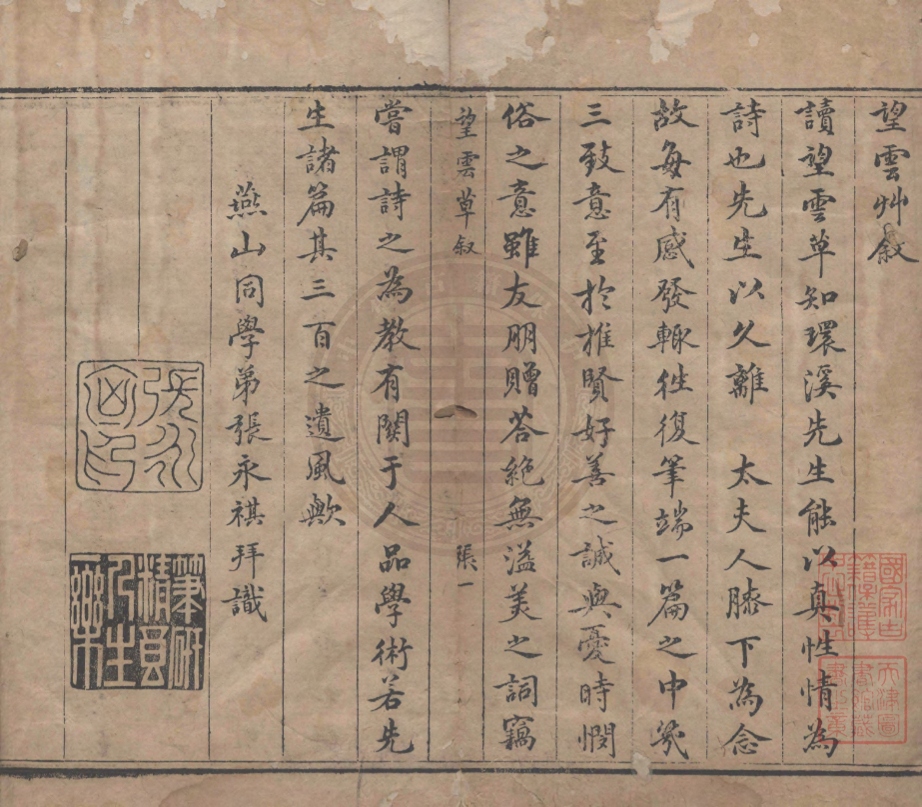 望雲艸叙
讀望雲草知環溪先生能以真性情為
詩也先生以久離　太夫人膝下為念
故每有感發輙徃復筆端一篇之中㡬
三致意至於推賢好善之誠與憂時憫
俗之意雖友朋贈荅絶無溢美之詞竊
望雲草叙　張一
嘗謂詩之為教有關于人品學術若先
生諸篇其三百之遺風歟
燕山同學弟張永祺拜識
筆研精良人生一樂
國家古籍學善
天津圖書館藏書之章